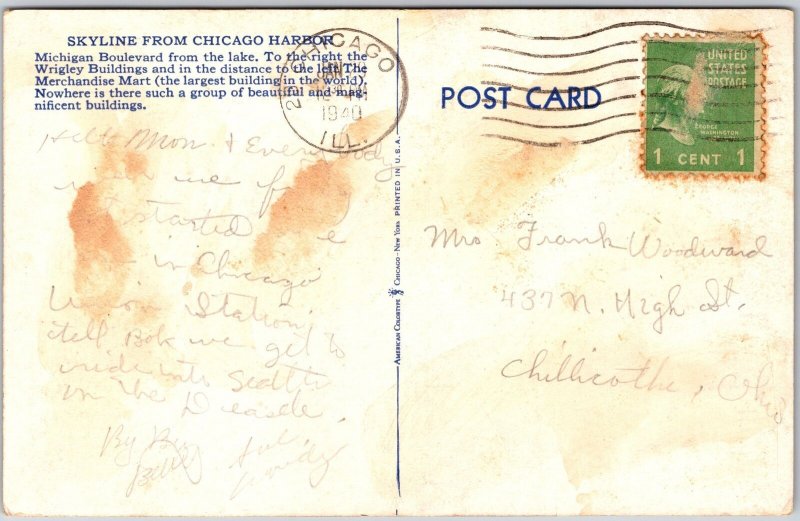 SKYLINE FROM CHICAGO HARBOR
Michigan Boulevard from the lake. To the right the
Wrigley Buildings and in the distance to the left The
Merchandise Mart (the largest building in the world).
Nowhere is there such a group of beautiful and mag-
nificent buildings.
Hello Mom & Everybody
we
started
in Chicago
Union Station.
tell Bob we get to
ride into Seattle
in the
By By
CHICAGO
1940
ILL.
AMERICAN COLORTYPE CHICAGO - NEW YORK PRINTED IN U.S.A.
POST CARD
UNITED
STATES
POSTAGE
GEORGE
WASHINGTON
1 CENT 1
Mrs Frank Woodward
437 N. High St.
Chillicothe, Ohio